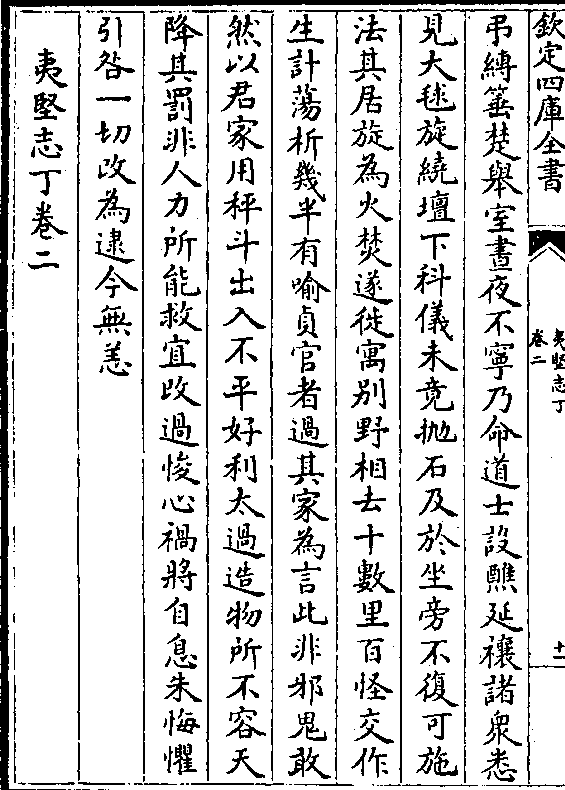 欽定四庫全書
夷堅志丁
卷二
十一
弔縛箠楚舉室晝夜不寧乃命道士設醮延禳諸衆悉
見大毬旋繞壇下科儀未竟抛石及於坐旁不復可施
法其居旋為火焚遂徙寓别野相去十數里百怪交作
生計蕩析幾半有喻貞官者過其家為言此非邪鬼敢
然以君家用秤斗出入不平好利太過造物所不容天
降其罰非人力所能救宜改過悛心禍將自息朱悔懼
引咎一切改為逮今無恙
夷堅志丁卷二